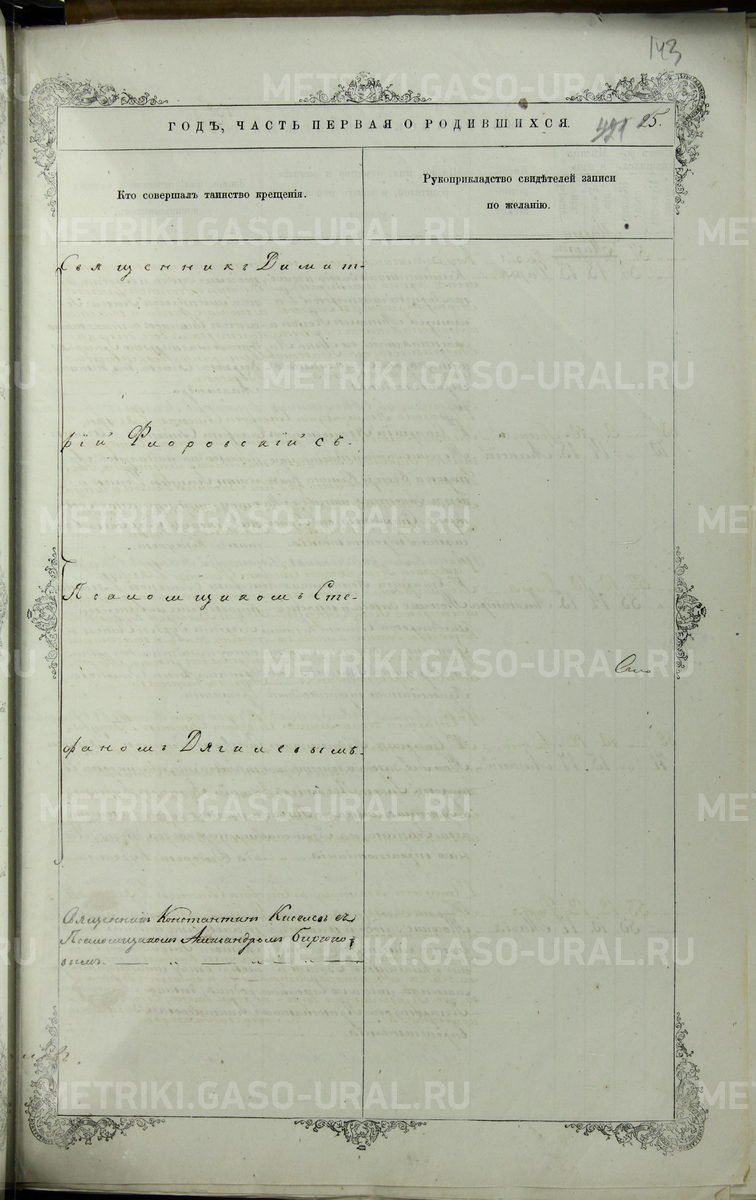 143
ГОДЪ, ЧАСТЬ ПЕРВАЯ О РОДИВШИХСЯ.
25.
Кто совершалъ таинство крещенія.
Рукоприкладство свидѣтелей записи
по желанію.
Священникъ Димит-
рій Флоровскій съ
Псаломщикомъ Сте-
фаномъ Дягилевымъ.
Священникъ Константинъ Киселевъ съ
Псаломщикомъ Александромъ
METRIKI.GASO-URAL.RU